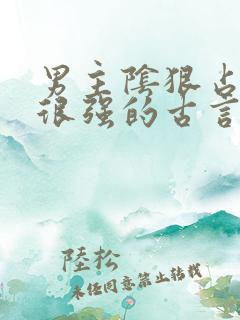 男主陰狠占
很强的古言
陸松
未经同意禁止转载